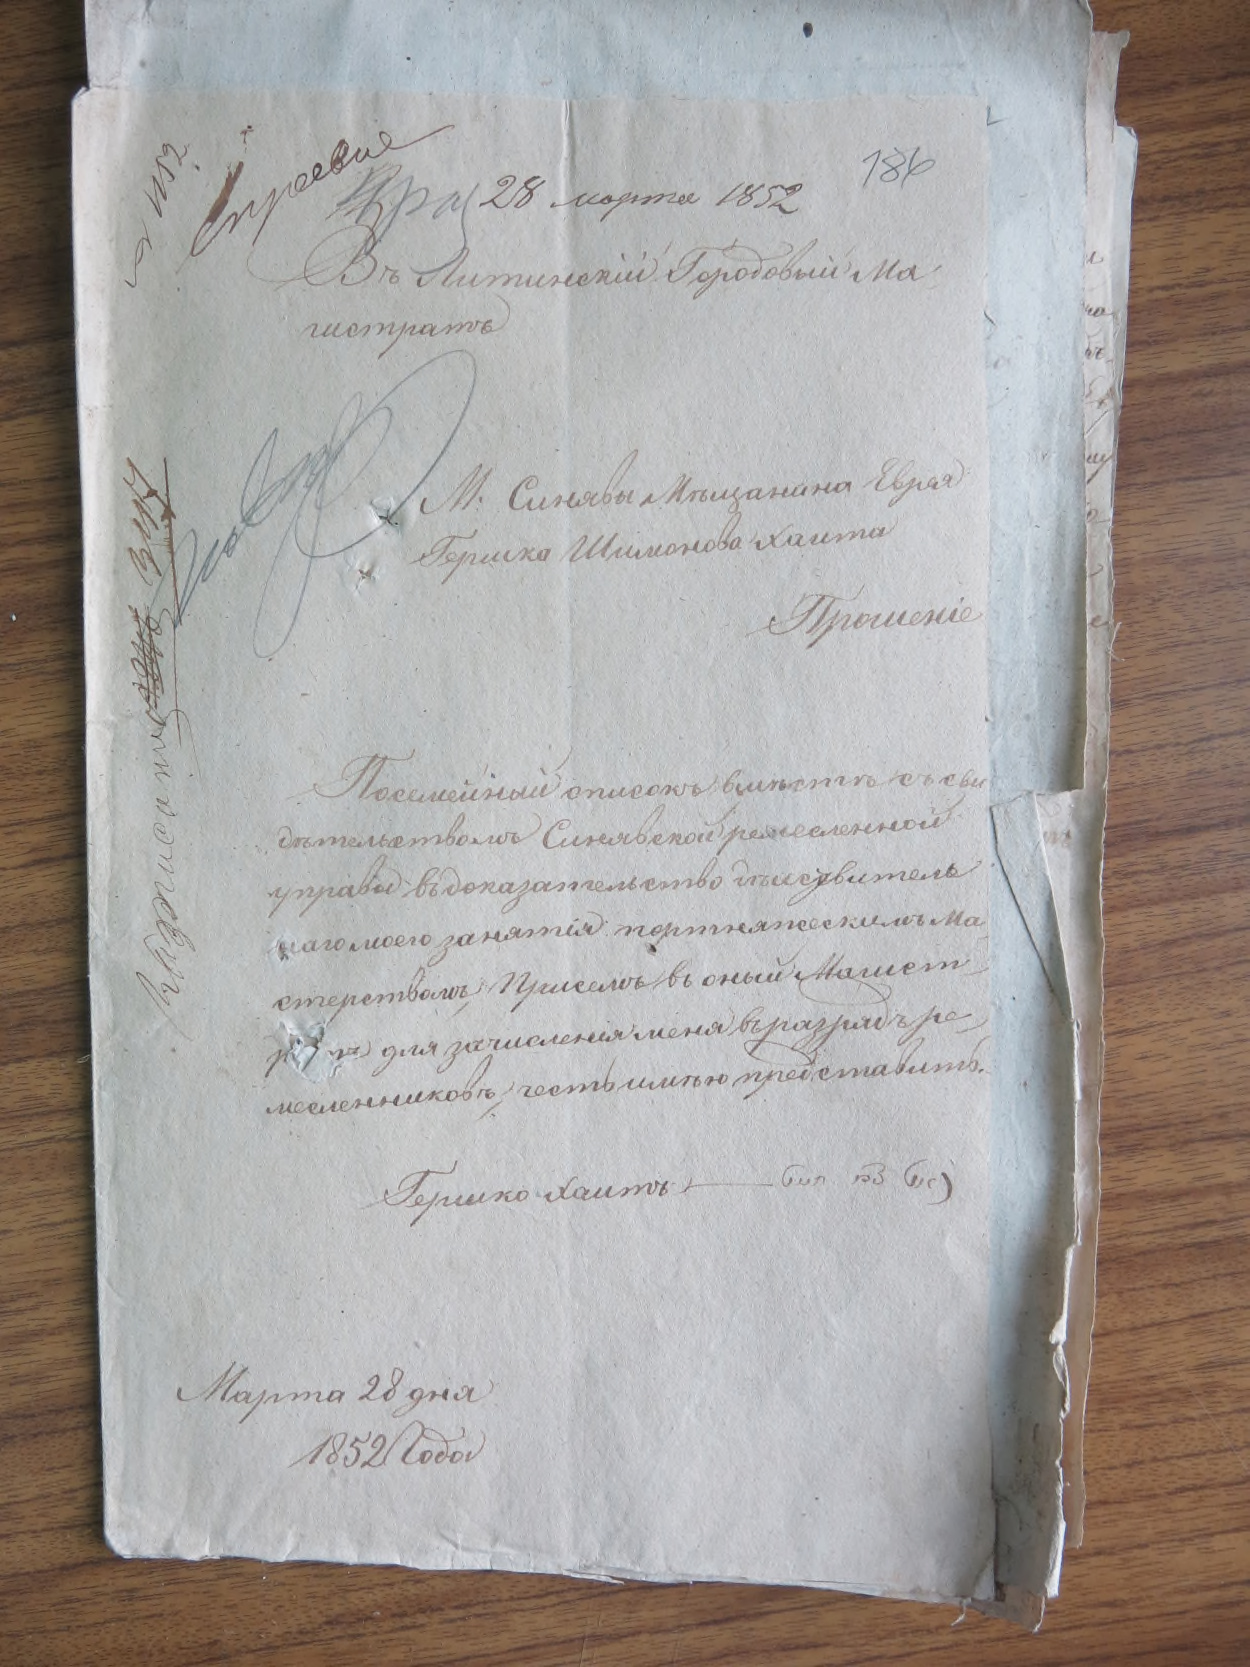 186
28 марта 1852
Въ Литинскій Городовый Ма
гистратъ
М. Синявы Мѣщанина Еврея
Гершка Шимонова Хаита
Прошеніе
Посемейный списокъ вмѣстѣ съ сви
дѣтельствомъ Синявской ремесленной
управы въ доказательство дѣиствитель
наго моего занятія портняческимъ Ма
стерствомъ, Присемъ въ оный Магист
для зачисленія меня въ разрядъ ре
месленниковъ, честь имѣю представить.
Гершко Хаитъ
Марта 28 дня
1852 Года